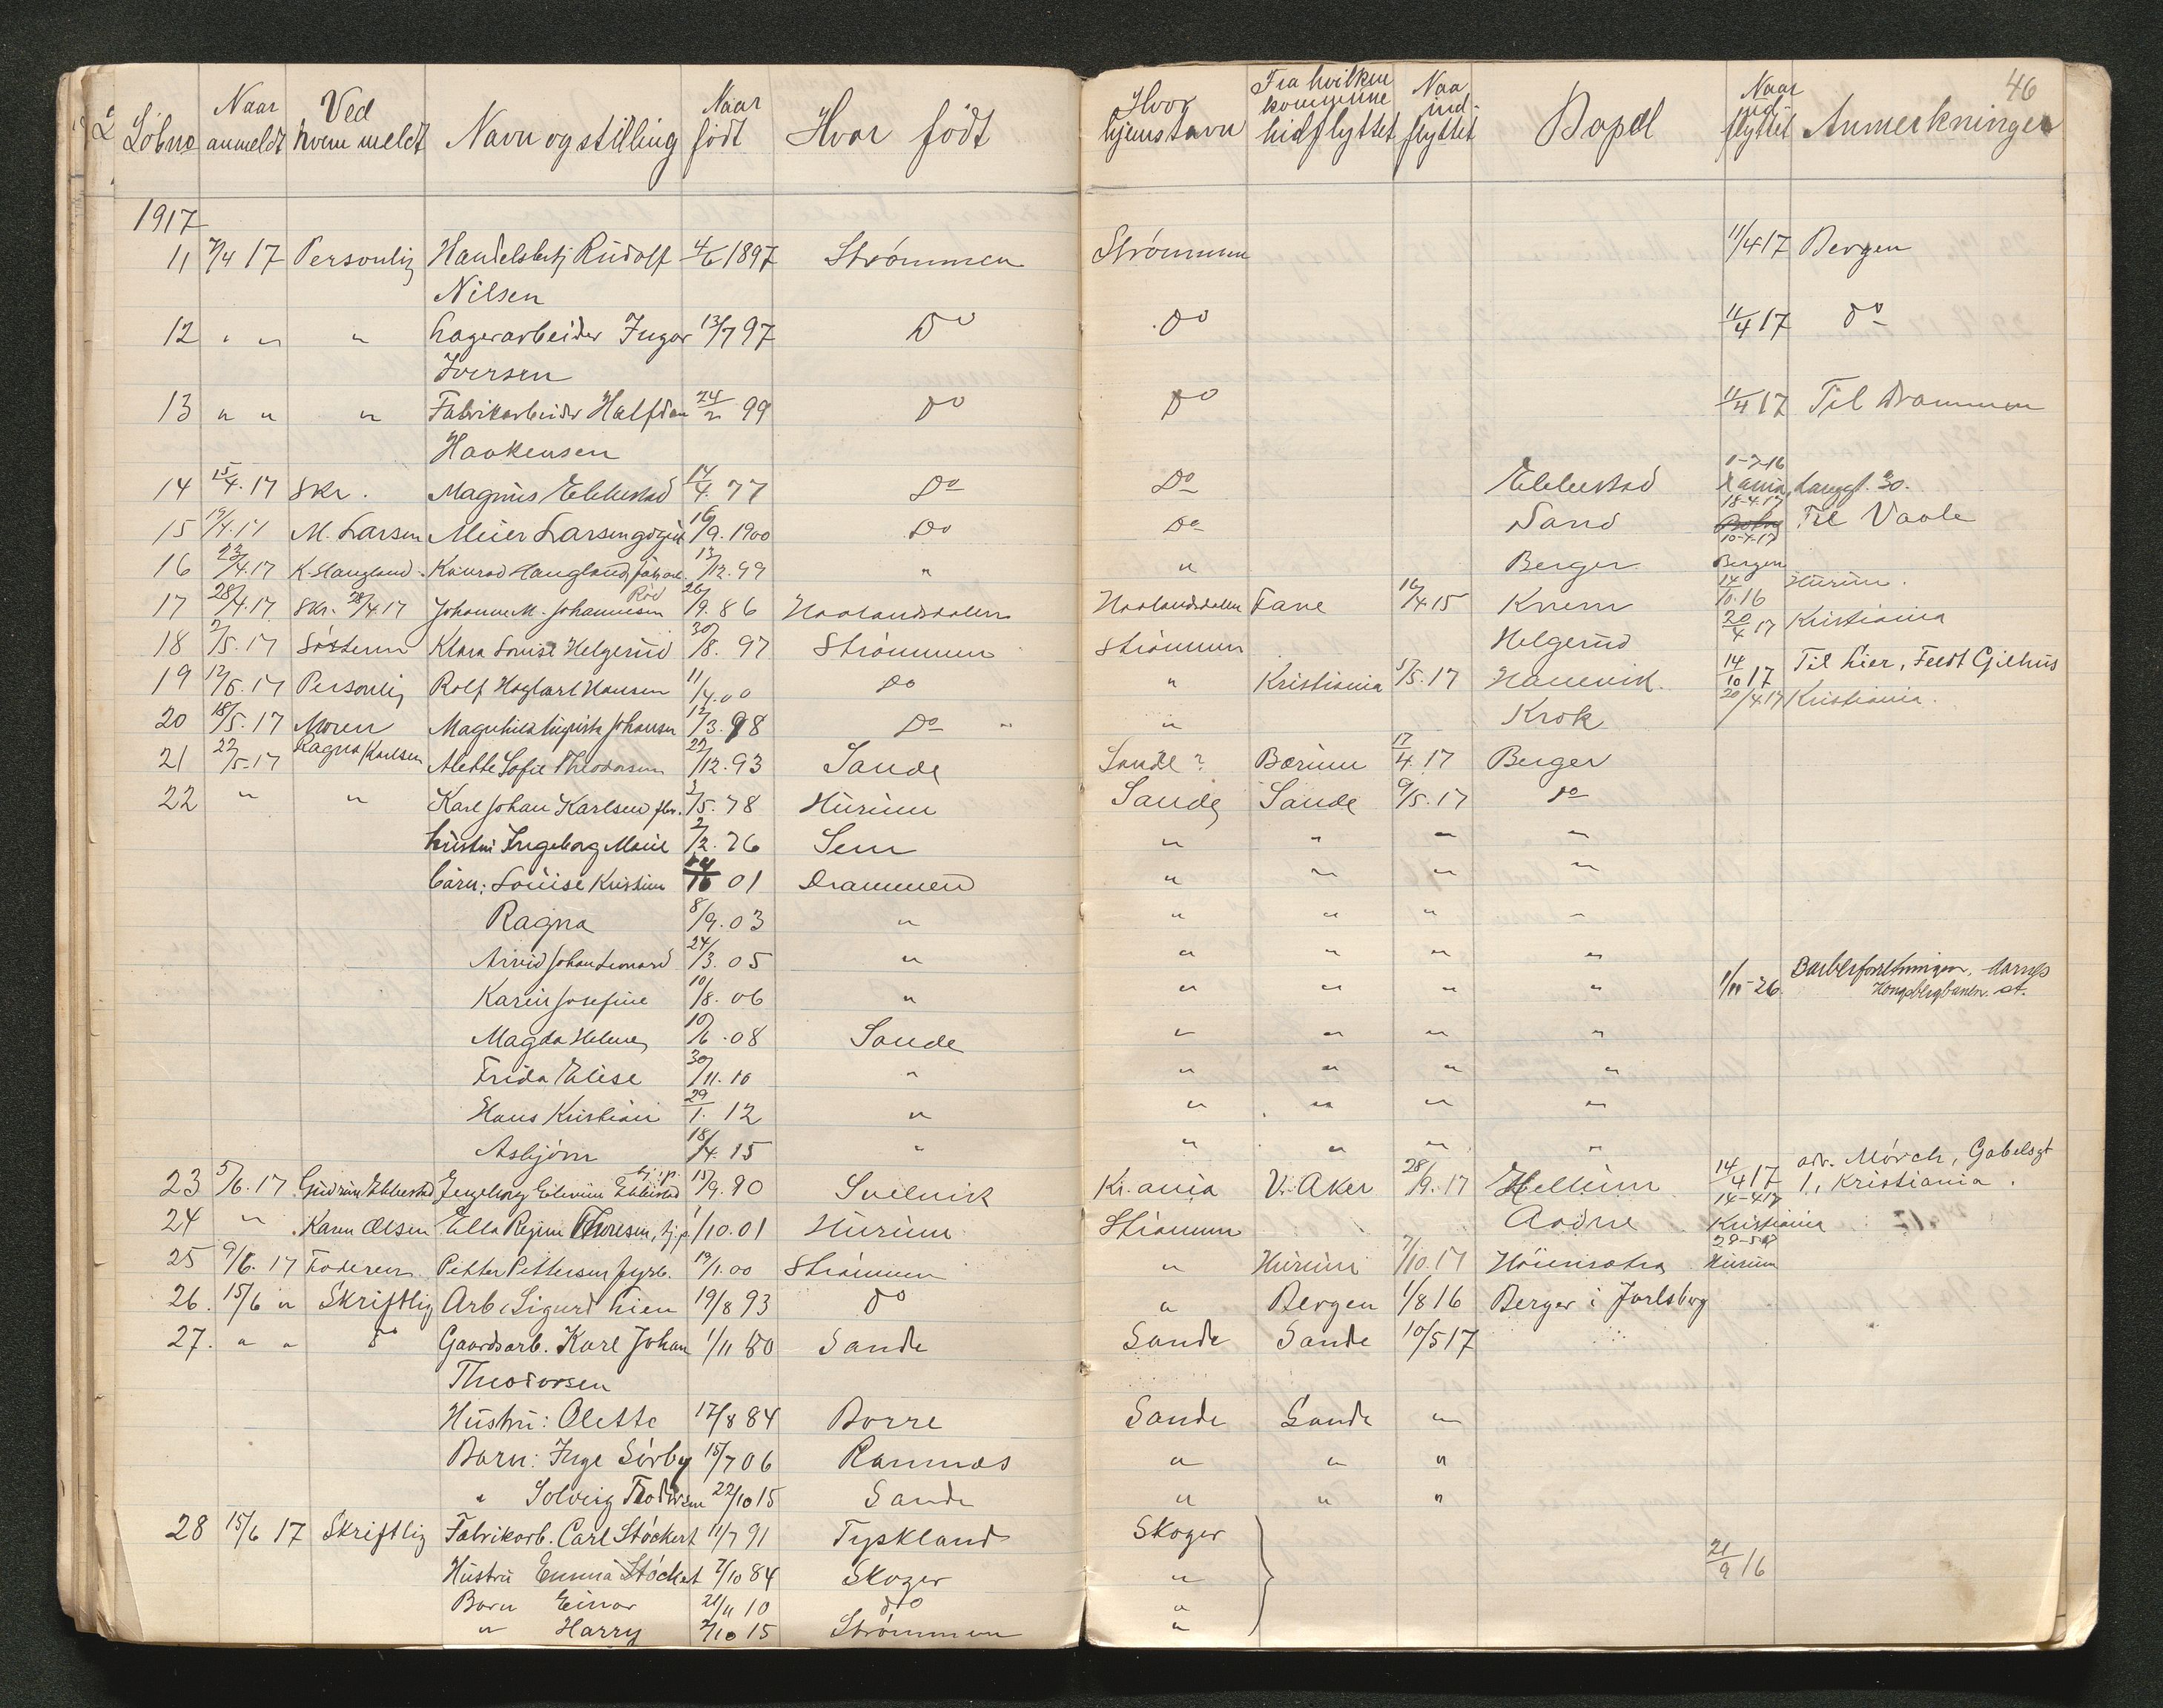 46
Løbno Naar anmeldt Ved hvem meldt Navn og stilling Naar født Hvor født Hvor hjemstavn Fra hvilken kommune hidflyttet Naar indflyttet Bopæl Naar udflyttet Anmerkninger
1917
11 7/4 17 Personlig Handelsbetj Rudolf 4/6 1897 Strømmen Strømmen 11/4 17 Bergen
Nilsen
12 " " " Lagerarbeider Ingar 13/7 97 Do Do 11/4 17 do
Iversen
13 " " " Fabrikarbeider Halfdan 24/2 99 Do Do 11/4 17 Til Drammen
Haakensen
14 15/4.17 Skr. Magnus Ebbestad 14/4.77 Do Do Ebbestad 1-7-16 Kania, Langgt. 30.
15 19/4.17 M. Larsen Meier Larsen 16/9.1900 Do Do Sand 18-4.17 Til Vaale
16 23/4.17 K. Haugland Konrad Haugland, fabr.arb. 13/12.99 " " Berger 10-4-17 Bergen
17 28/4.17 Skr. 28/4 17 Johanne M. Johannesen Rød 26/9.86 Haalandsdalen Haalandsdalen Fane 16/4 15 Knem 14/10.16 Hurum.
18 2/5.17 Søsteren Klara Louise Helgerud 30/8.97 Strømmen Strømmen Helgerud 20/4 17 Kristiania
19 12/5.17 Personlig Rolf Hagbart Hansen 11/4.00 Do " Kristiania 5/5.17 Hanevik 14/10 17 Til Lier, Feldt Gilhus
20 18/5.17 Moren Magnhild Augusta Johansen 12/3.98 Do " " Krok 20/4 17 Kristiania.
21 22/5.17 Ragna Karlsen Alette Sofie Theodorsen 22/12.93 Sande Sande? Bærum 17/4.17 Berger
22 " " Karl Johan Karlsen fbr. 2/5.78 Hurum Sande Sande 9/5.17 do
hustru Ingeborg Marie 2/2.76 Sem " " " "
børn: Louise Kristine 01 Drammen " " " "
Ragna 8/9.03 " " " " "
Arvid Johan Leonard 24/3.05 " " " " "
Karin Josefine 10/8.06 " " " " " 1/11-26. Barberforretningen, Kongsbergbanen st.
Magda Helene 10/6.08 Sande " " " "
Frida Elise 30/11.10 " " " " "
Hans Kristian 29/1.12 " " " " "
Asbjørn 18/4.15 " " " " "
23 5/6.17 Gudrun Ebbestad Jengeborg Ebbestad tj.p. 15/9.90 Svelvik Kr.ania V. Aker 28/9.17 Hellum 14/4 17 adv. Mørch, Gabelsgt 1, Kristiania.
24 " Karen Olsen Ella Regine Thoresen, tj.p. 1/10.01 Hurum Strømmen Aadne 14-4.17 Kristiania
25 9/6.17 Faderen Petter Pettersen fyrb. 19/1.00 Strømmen " Hurum 7/10.17 Høiensætra 28-5-17 Hurum
26. 15/6 " Skriftlig Arb. Sigurd Lien 19/8 93 do " Bergen 1/8 16 Berger i Jarlsberg
27. " " do Gaardsarb. Karl Johan 1/11 80 Sande Sande Sande 10/5 17
Theodorsen
Hustru: Olette 17/8 84 Borre Sande Sande "
Barn: Inge Sørby 15/7 06 Ramnæs " " "
" Solveig Teodorsen 22/10 15 Sande " " "
28 15/6 17 Skriftlig Fabrikarb. Carl Støckert 11/7 91 Tyskland Skoger
Hustru Emma Støckert 7/10 84 Skoger " 21/9 16
Barn Einar 21/11 10 do "
" Harry 7/10 15 Strømmen "